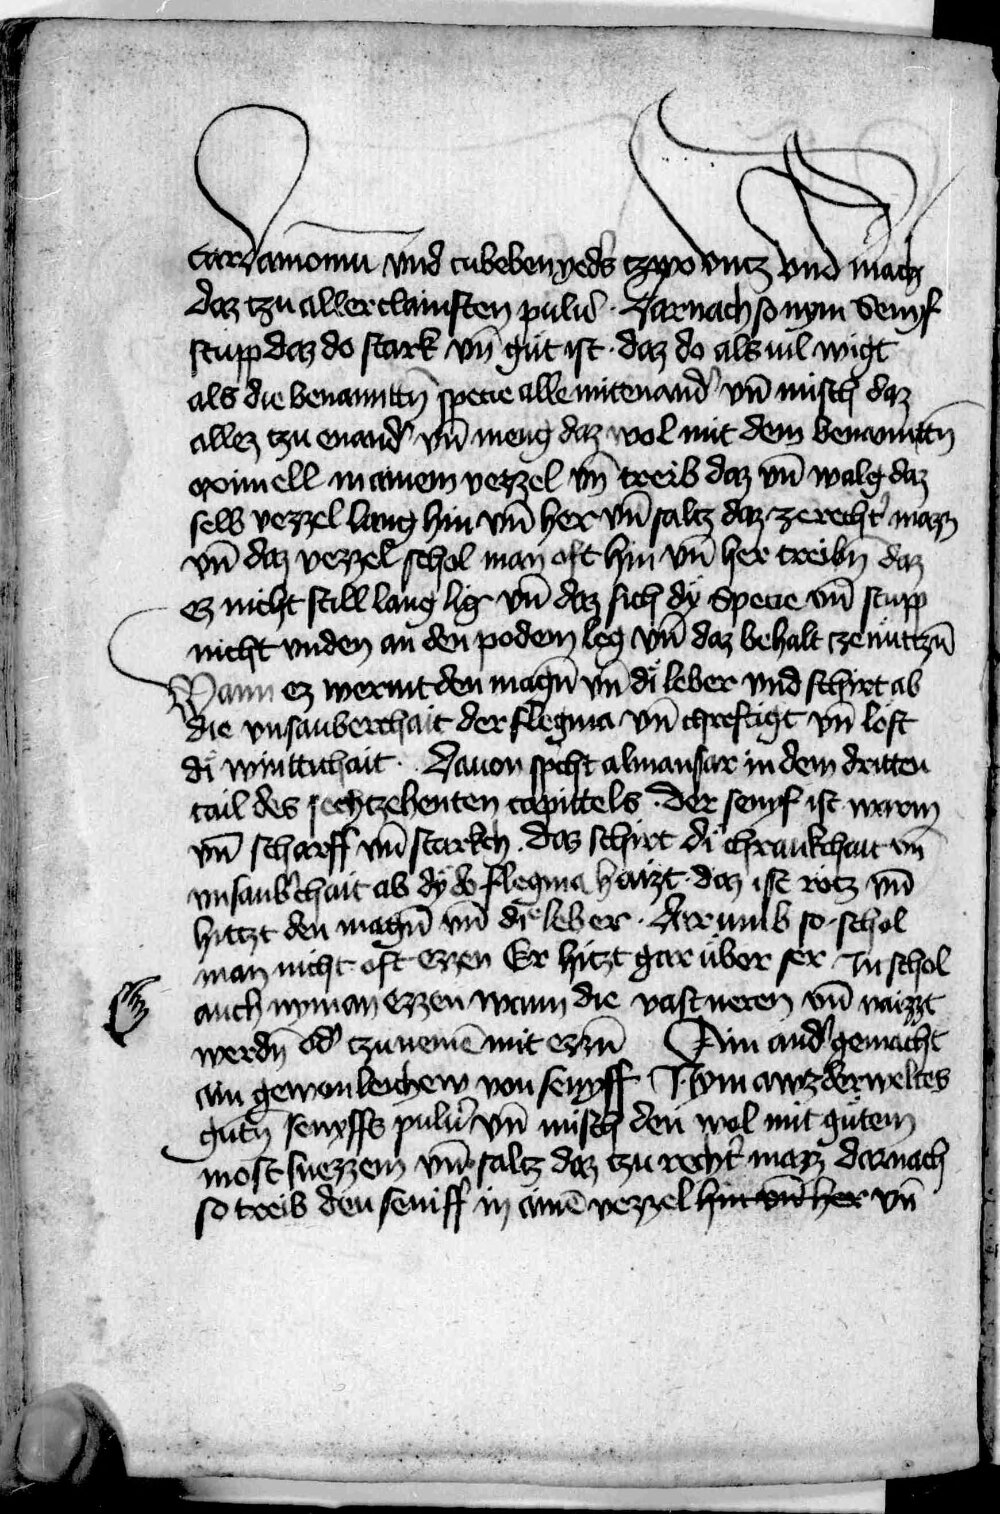 cardamomu vnd cubeben yeds tzwo vntz vnd mach
daz tzu aller clainsten puluer · Darnach so nym Senyf
stupp daz do stark vn̄ gut ist · daz do als vil wigt
als die benanntn̄ specie alle mitenand' vn̄ misch daz
allez tzu enand' vn̄ meng daz wol mit dem benanntn̄
oximell in ainem vezzel vn̄ treib daz vn̄ walg daz
selb vezzel lang hin vn̄ her vn̄ saltz daz ze recht' mazz
vn̄ daz vezzel schol man oft hin vn̄ her treibn̄ daz
ez nicht still lang lig vn̄ daz sich dÿ Specie vn̄ stupp
nicht vnden an den podem leg vn̄ daz behalt ze nützn̄
Wann ez wermt den magn̄ vn̄ di leber vnd schirt ab
die vnsauberchait der flegma vn̄ chreftigt vn̄ löst
di winttichait · Dauon spcht almansar in dem dritten
tail des sechtzehenten capittels · Der senyf ist warm
vn̄ scharff vn̄ starkch · daz schirt di chrankchait vn̄
vnsaub'chait ab dÿ do flegma haizt · daz ist rotz vn̄
hittzt den magn̄ vn̄ die leber · Darumb so schol
man nicht oft ezzen Er hitzt gar über ser In schol
auch nyman ezzen wann die vast neren vn̄ vaizzt
werdn̄ od' tzunemē mit ezzn̄ Ain and' gemächt
ain gewonleichew von senyff Nym awzderweltes
gutn̄ senyffs puluer vn̄ misch den wol mit gutem
most suezzem vn̄ saltz daz tzu recht' mazz darnach
so treib den seniff in aimē vezzel hin vn̄ her vn̄